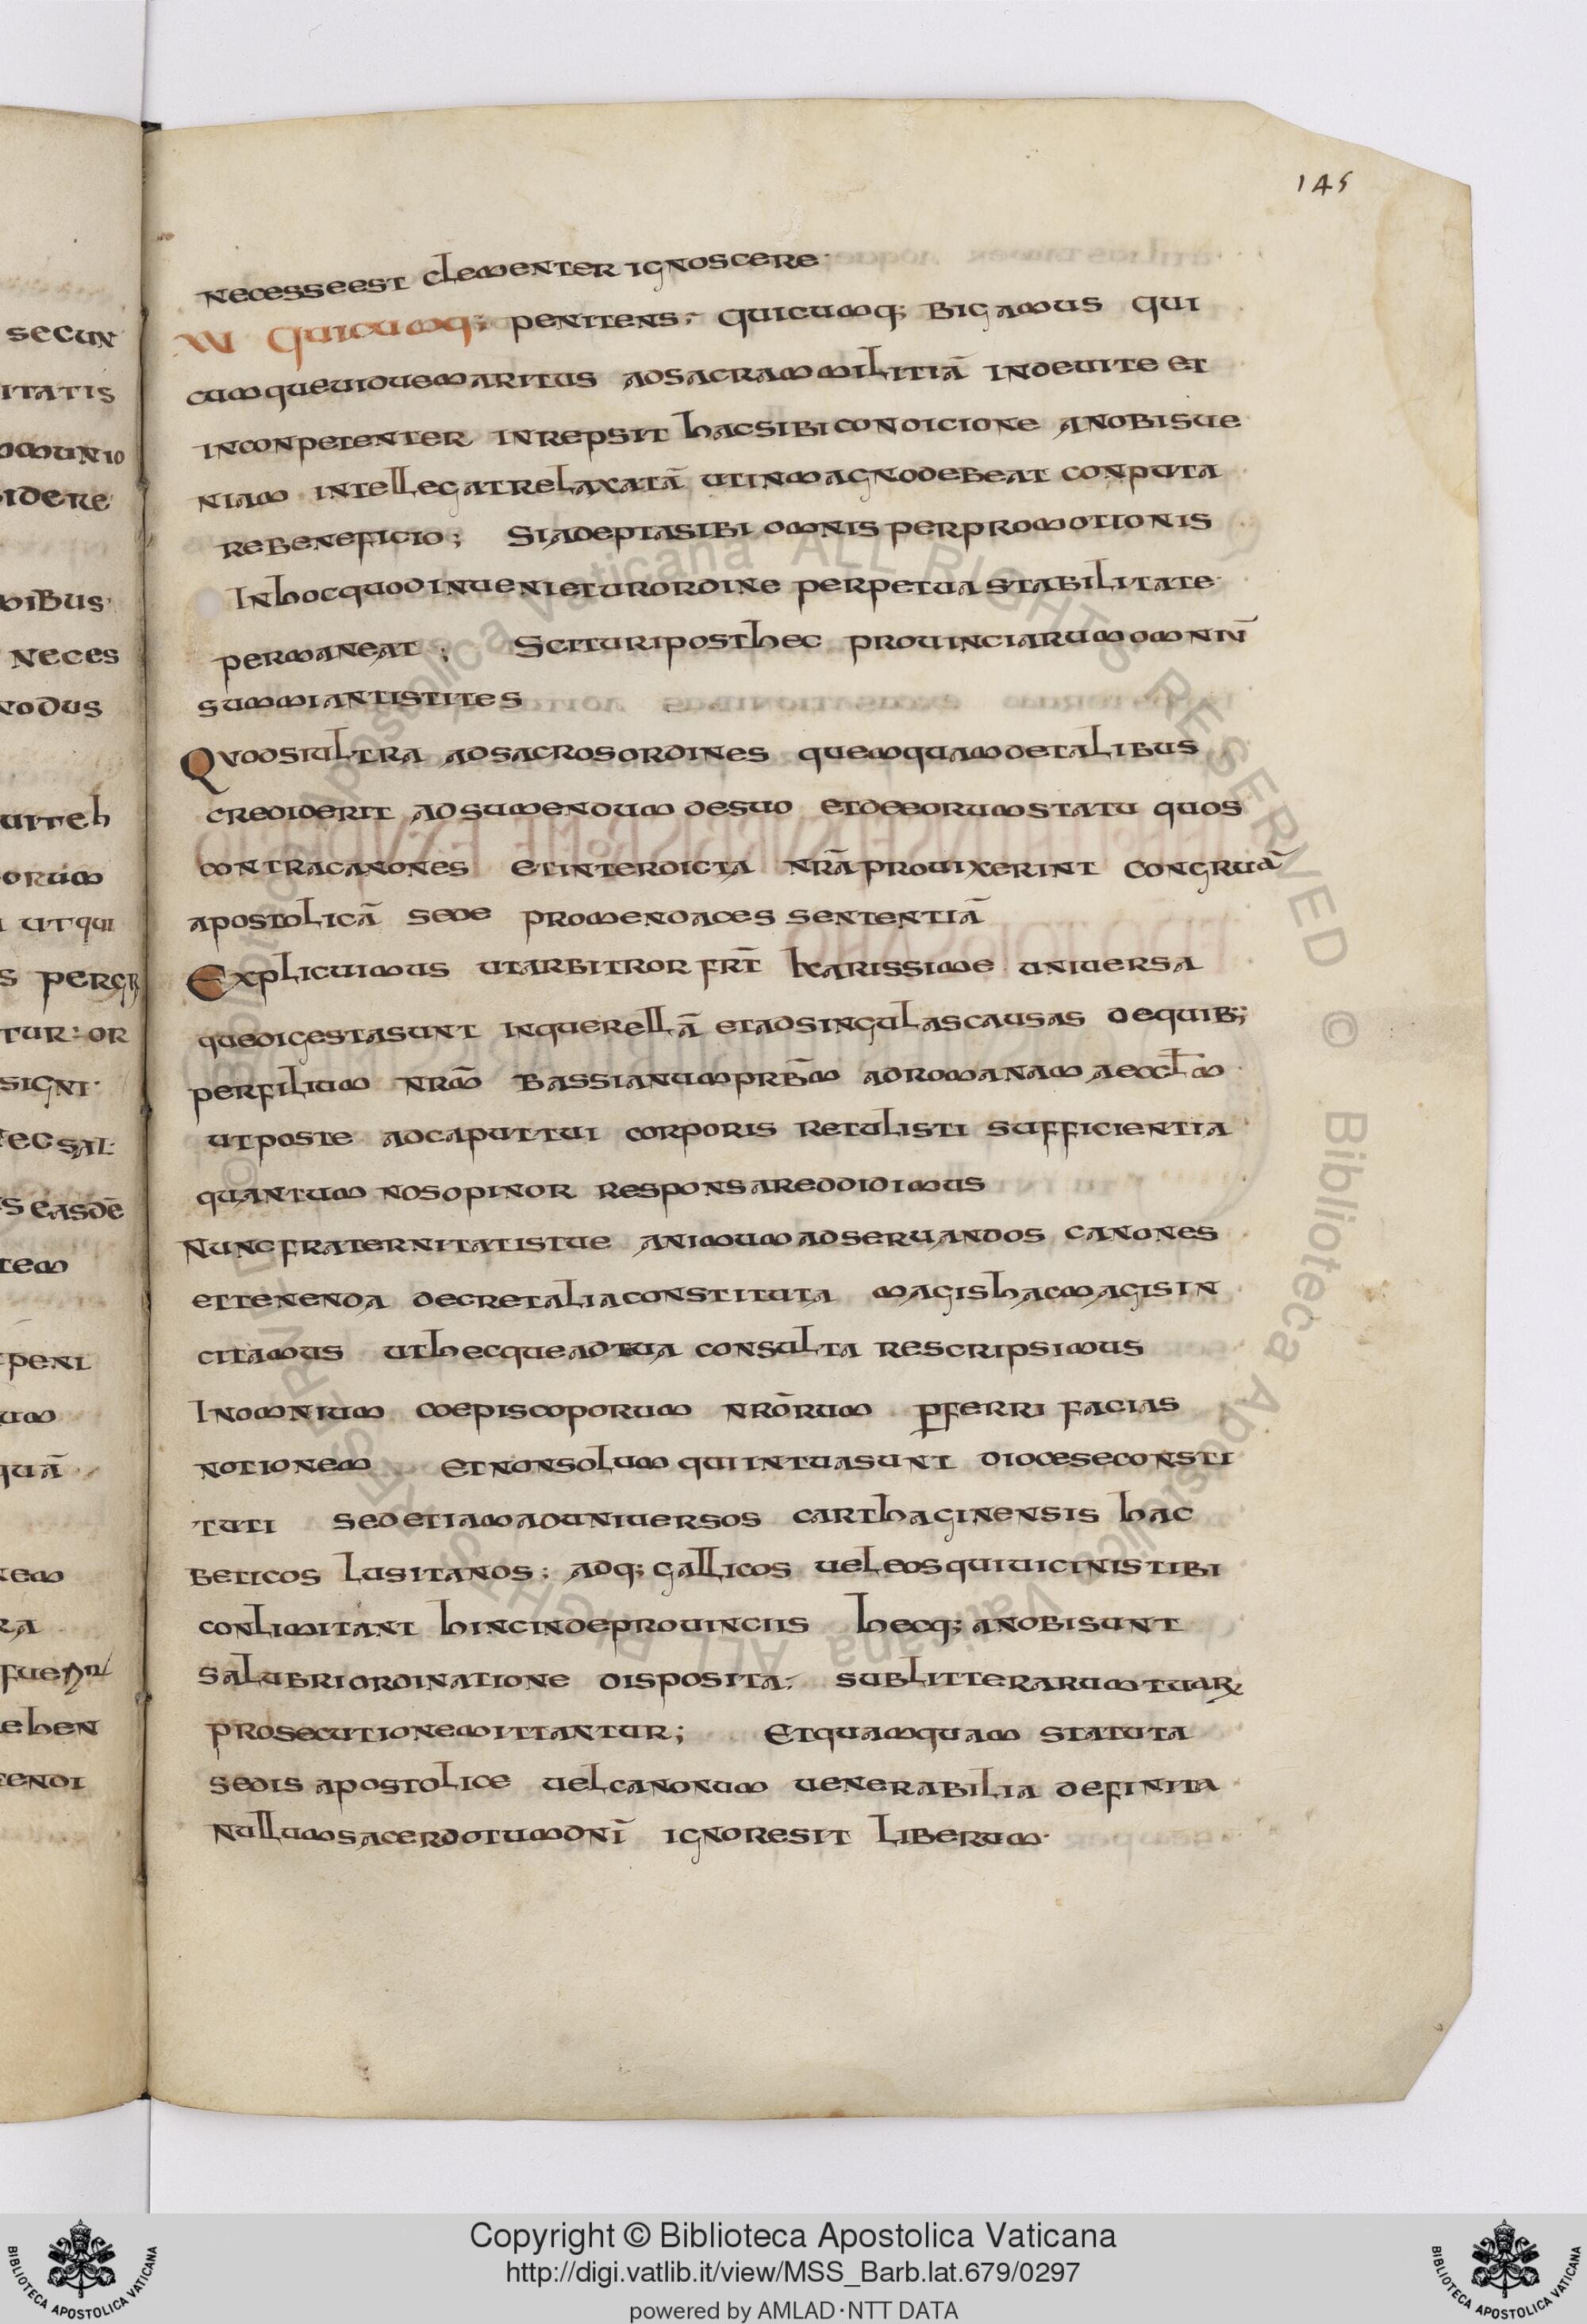 145
necesse est clementer ignoscere·
XVI Quicumq; penitens· quicumq; bigamus qui
cumque uidue maritus ad sacram militiā indeuite et
inconpetenter inrepsit hac sibi condicione a nobis ue
niam intellegat relaxatā ut in magno debeat conputa
re beneficio; Si adepta sibi omnis per promotionis
In hoc quod inuenietur ordine perpetua stabilitate·
permaneat; Scituri post hec prouinciarum omniū
summi antistites
Quod si ultra ad sacros ordines quemquam de talibus
crediderit adsumendum de suo et de eorum statu quos
contra canones et interdicta nrā prouixerint congruā
apostolicā sede promenda ces sententiā
Explicuimus ut arbitror frt̄ karissime uniuersa
que digesta sunt in querellā et ad singulas causas de quib;
per filium nrm̄ bassianum prbm̄ ad romanam aeccl̄m
ut poste ad caput tui corporis retulisti sufficientia
quantum nos opinor responsa reddidimus
Nunc fraternitatis tue animum ad seruandos canones
et tenenda decretalia constituta magis hac magis in
citamus ut hec que ad tua consulta rescripsimus
In omnium coepiscoporum nrōrum p̱ferri facias
notionem et non solum qui in tua sunt diocese consti
tuti sed etiam ad uniuersos carthaginensis hac
beticos lusitanos; adq; gallicos uel eos qui uicinis tibi
conlimitant hinc inde prouinciis hecq; a nobis unt
salubri ordinatione disposita· sub litterarum tuarꝝ
prosecutione mittantur; Et quamquam statuta
sedis apostolice uel canonum uenerabilia definita
nullum sacerdotum dnī ignore sit liberum·
secun
itatis
mmunio
idere
nibus·
neces
nodus
uiteh
orum
utqui
s pergr
tur: or
signi·
nec sal·
s easdē
tem
peni
um
quā
nem
ra
ehen
tendi
Copyright © Biblioteca Apostolica Vaticana
http://digi.vatlib.it/view/MSS_Barb.lat.679/0297
powered by AMLAD·NTT DATA
BIBLIOTECA APOSTOLICA VATICANA
BIBLIOTECA APOSTOLICA VATICANA
© Biblioteca Apostolica Vaticana ALL RIGHTS RESERVED © Biblioteca Apostolica Vaticana ALL RIGHTS RESERVED